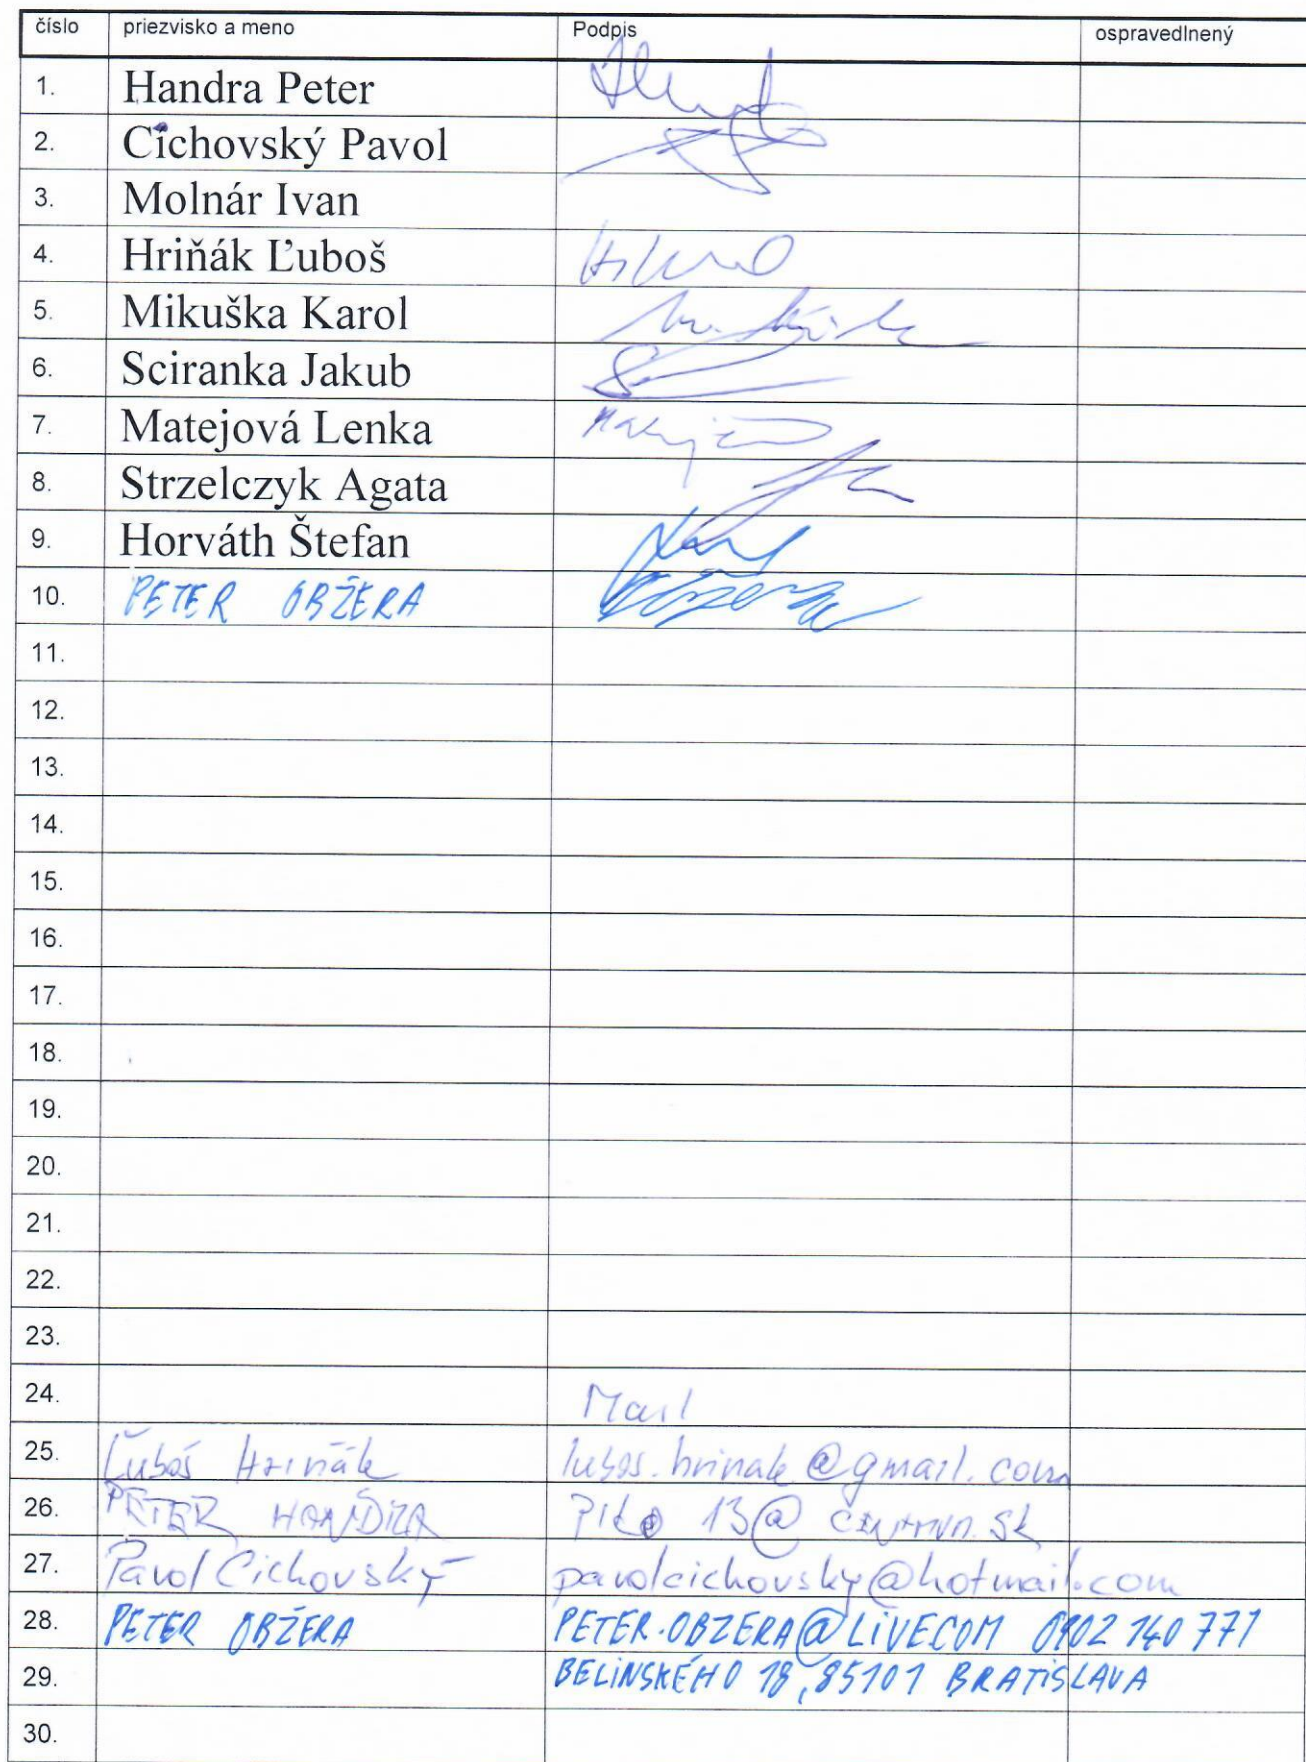 číslo priezvisko a meno Podpis ospravedlnený
1. Handra Peter
2. Cichovský Pavol
3. Molnár Ivan
4. Hriňák Ľuboš
5. Mikuška Karol
6. Sciranka Jakub
7. Matejová Lenka
8. Strzelczyk Agata
9. Horváth Štefan
10. PETER OBŽERA
11.
12.
13.
14.
15.
16.
17.
18.
19.
20.
21.
22.
23.
24. Mail
25. Ľuboš Hriňák lubos.hrinak@gmail.com
26. PETER HANDRA 13@centrum.sk
27. Pavol Cichovský pavolcichovsky@hotmail.com
28. PETER OBŽERA PETER.OBZERA@LIVECOM 0902 140 771
29. BELINSKÉHO 18, 85101 BRATISLAVA
30.